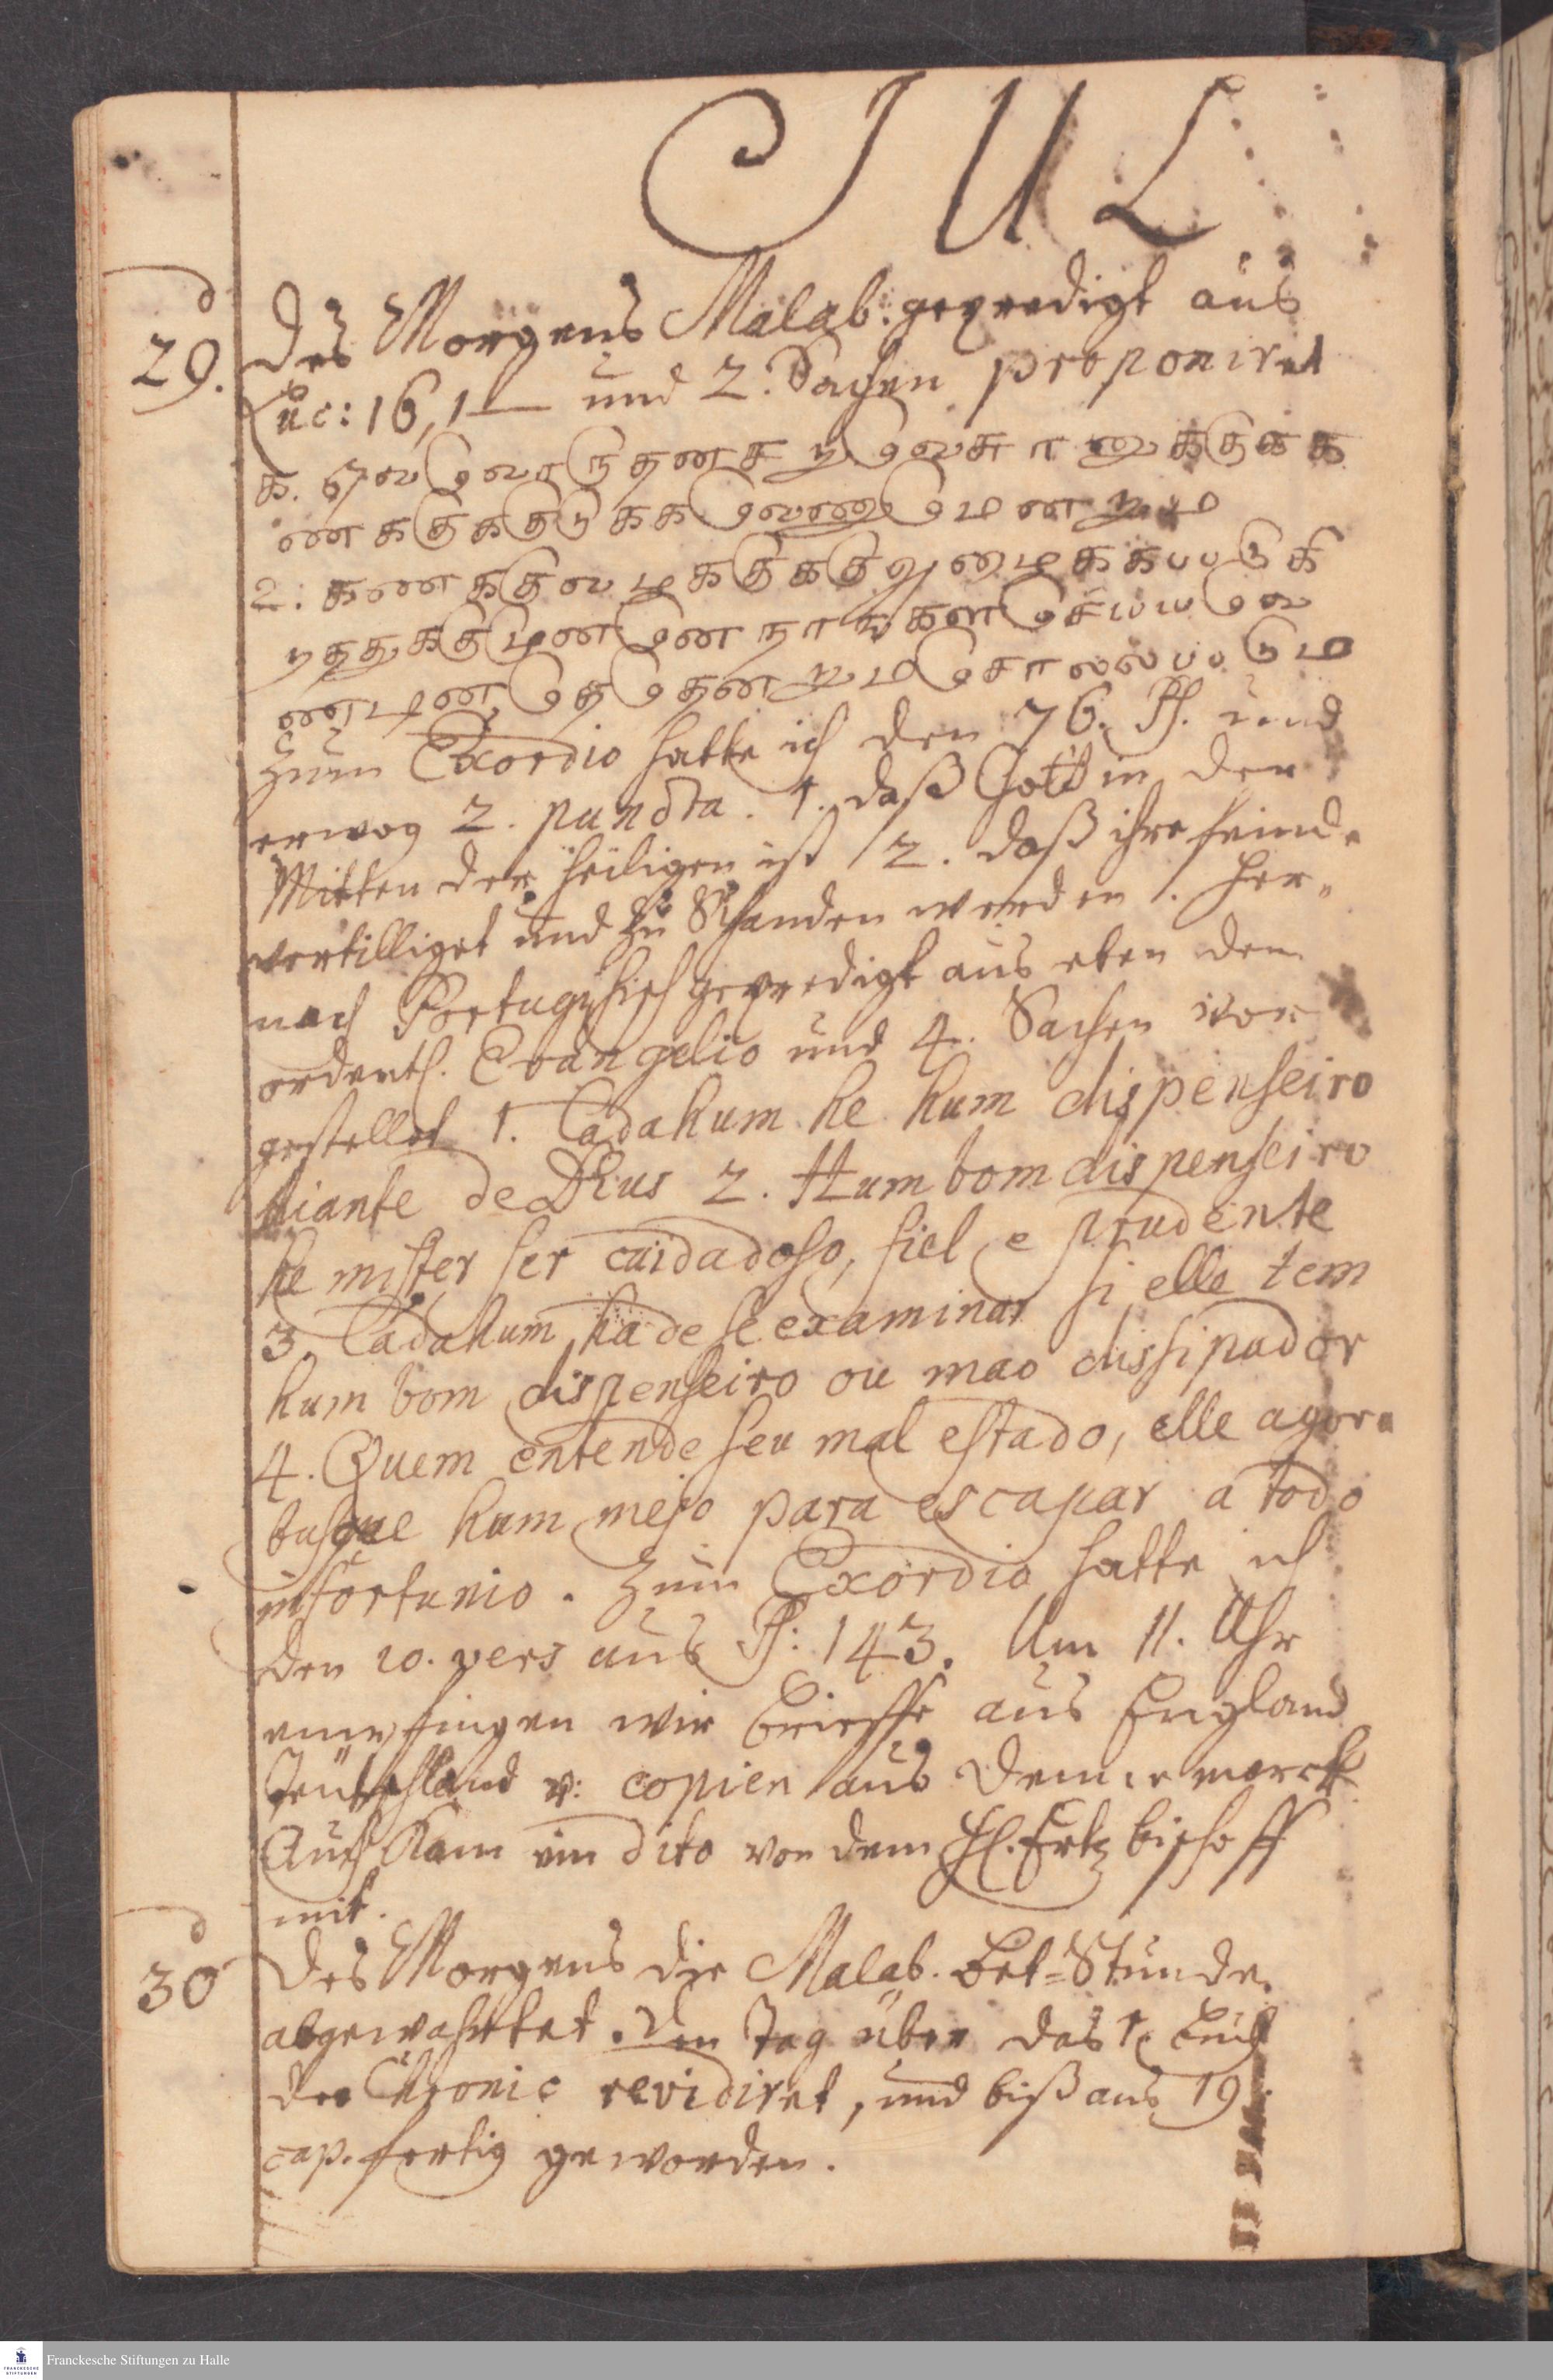 JUL
29. Des Morgens Malab: gepredigt aus
Luc: 16, 1— und 2. Sachen proponiret
க.
ண க்குக்குடுக்க வேணுமென்று ம
உ: கணக்கு
நாங்கள் செய்யவே
சொல்லப்படும
Zum Exordio hatte ich den 76. Ps. und
erwog 2. puncta. 1. daß Gott in der
Mitten der heiligen ist / 2. daß ihre feinde
vertilliget und zu Schanden werden /. Her-
nach Portugisisch gepredigt aus eben dem
ordentl. Evangelio und 4. Sachen vor
gestellet 1. Cadahum he hum dispenseiro
diante de DEus 2. Hum bom dispenseiro
he mister ser cuidadoso, fiel e prudente
3. Cadahum ha de se examinar si elle tem
hum bom dispenseiro ou mao dissipador
4. Quem entende seu mal estado, elle agora
busque hum mejo para escapar a todo
infortunio. Zum Exordio hatte ich
den 10. vers aus Ps: 143. Um 11. Uhr
empfingen wir brieffe aus England
Teutschland u: copien aus Dennemarck
Auch kam ein dito von dem Hl. Ertzbischoff
mit.
30 Des Morgens die Malab. Bet=Stunde
abgewahrtet. Den Tag über das 1. Buch
der Chronic revidiret, und biß aus 19.
cap. fertig geworden.
Franckesche Stiftungen zu Halle